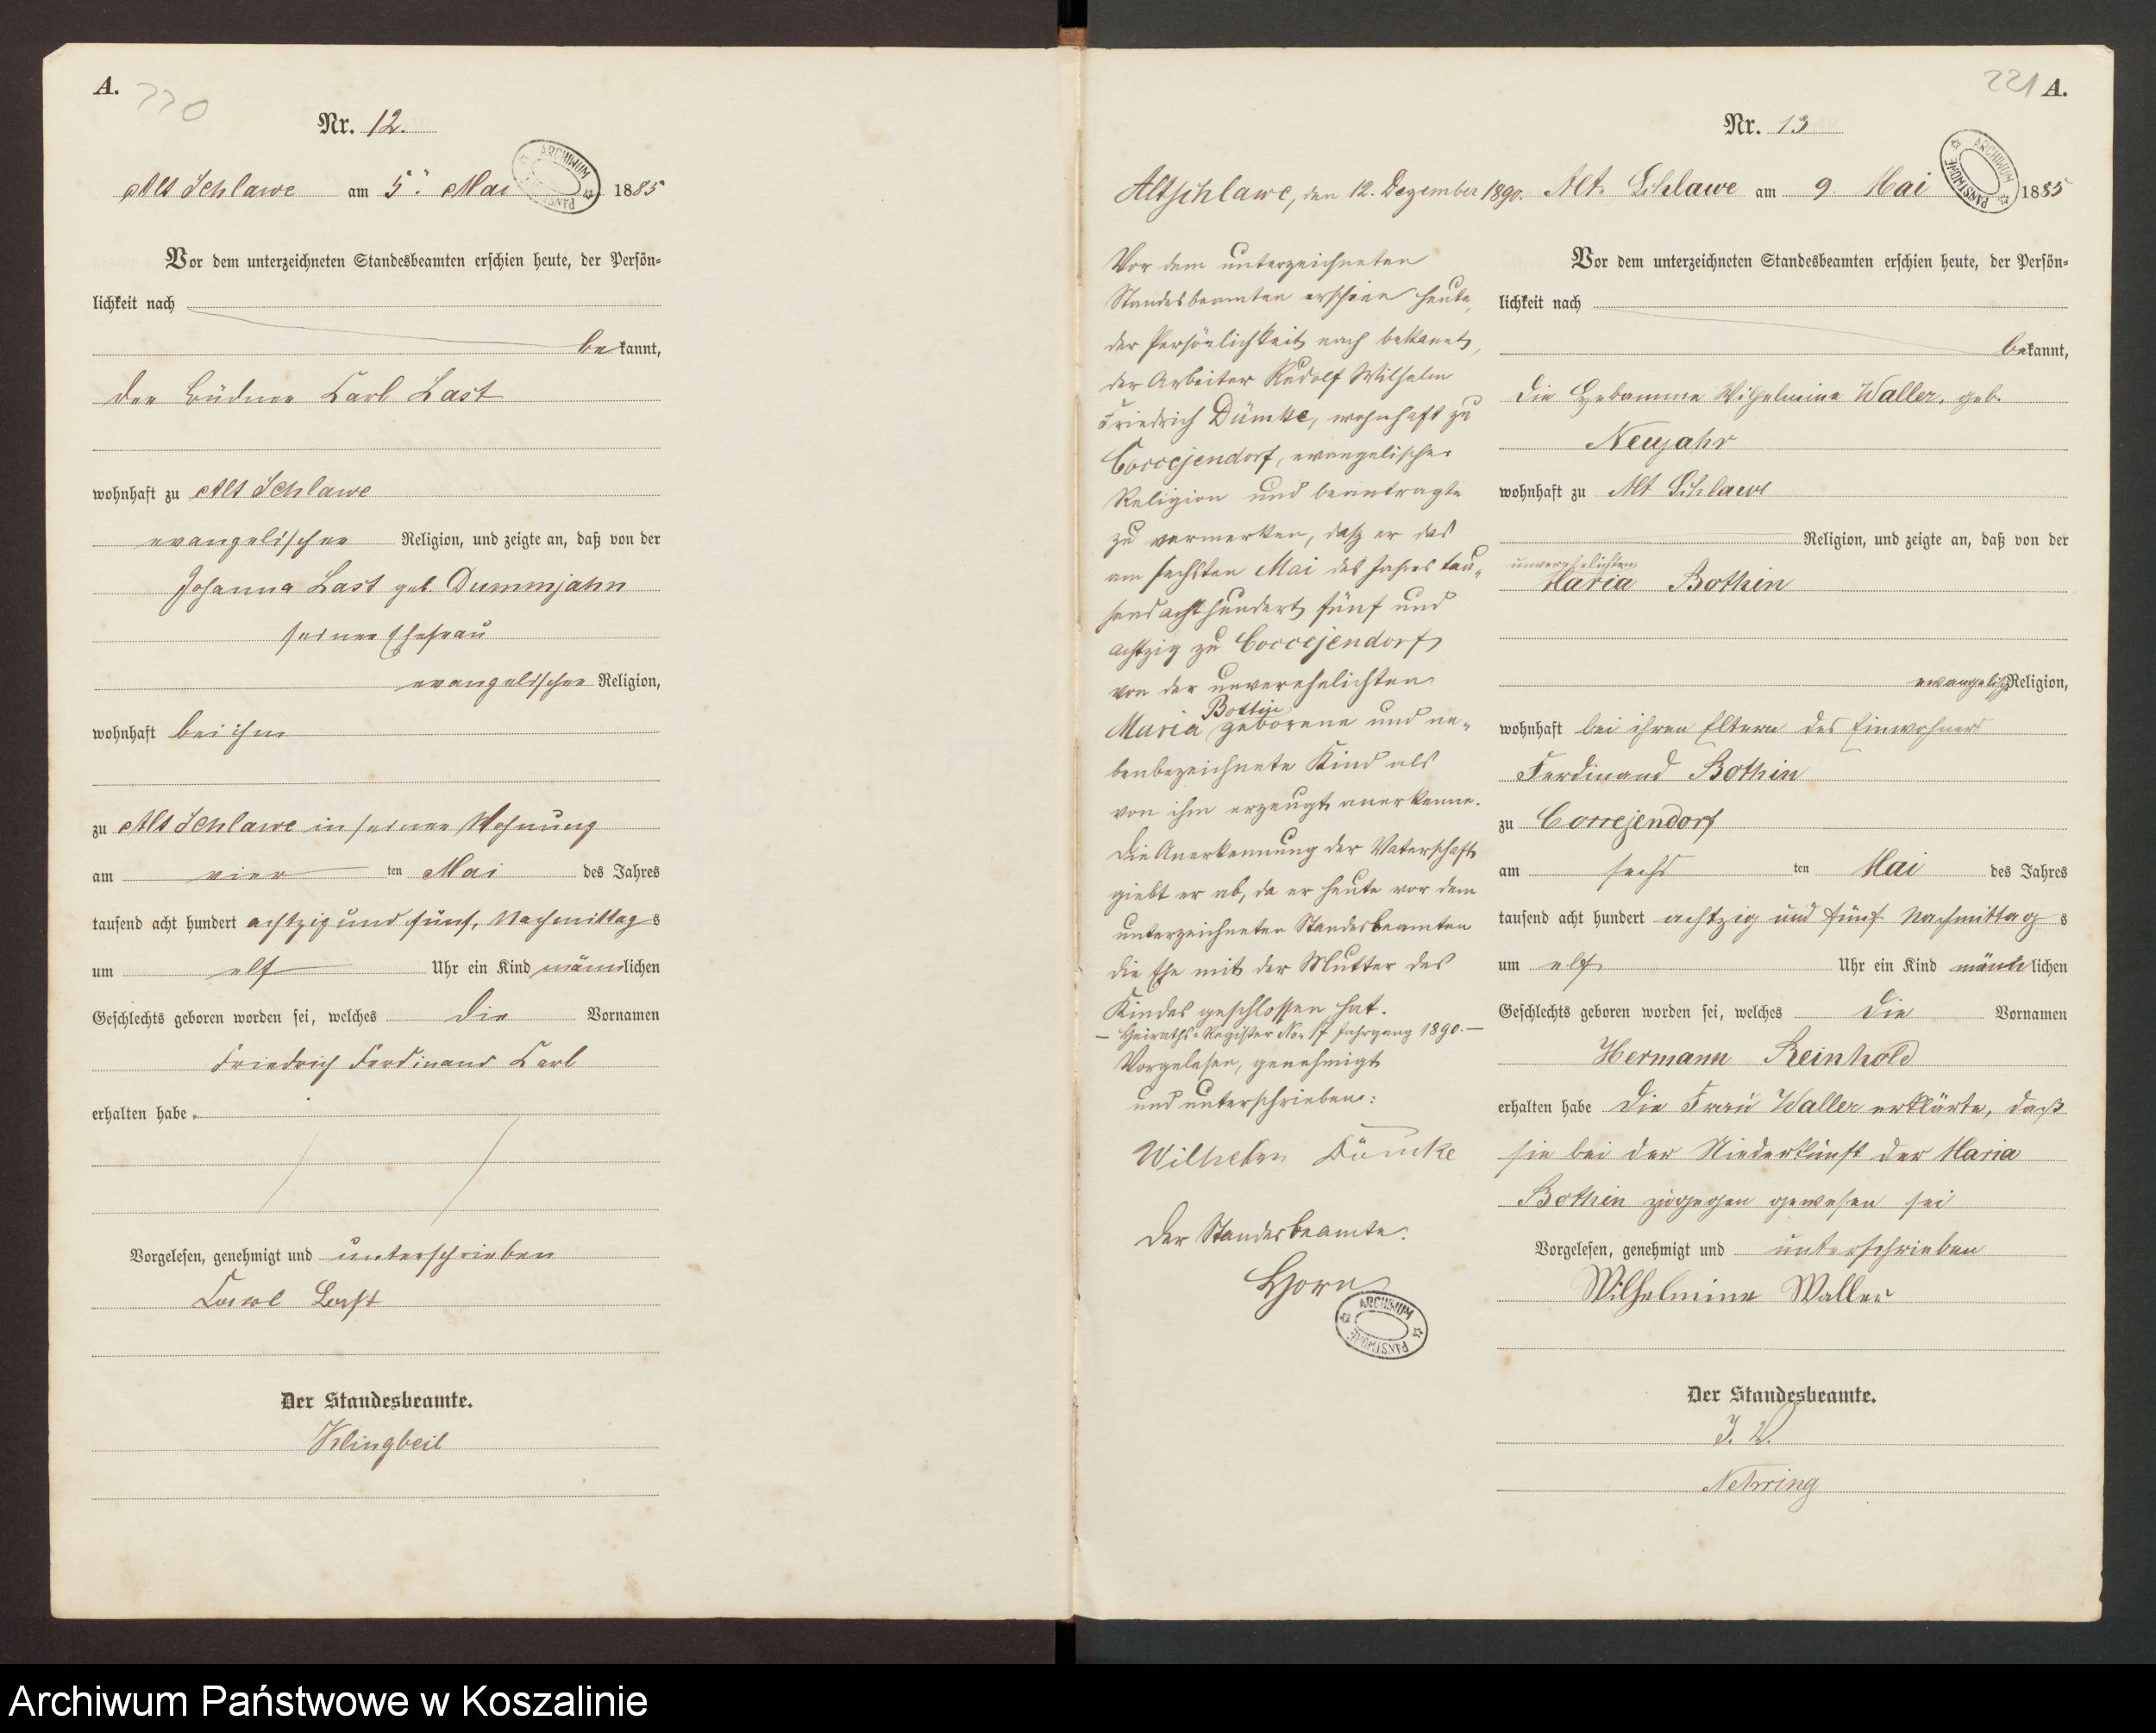 A.
220
Nr. 12.
Alt Schlawe am 5. Mai 1885
ARCHIWUM PAŃSTWOWE
Vor dem unterzeichneten Standesbeamten erschien heute, der Persön-
lichkeit nach
bekannt,
der Büdner Carl Last
wohnhaft zu Alt Schlawe
evangelischer Religion, und zeigte an, daß von der
Johanna Last geb. Dummjahn
seiner Ehefrau
evangelischer Religion,
wohnhaft bei ihm
zu Alt Schlawe in seiner Wohnung
am vier ten Mai des Jahres
tausend acht hundert achtzig und fünf, Nachmittags
um elf Uhr ein Kind männlichen
Geschlechts geboren worden sei, welches die Vornamen
Friedrich Ferdinand Carl
erhalten habe.
Vorgelesen, genehmigt und unterschrieben
Carl Last
Der Standesbeamte.
Klingbeil
Altschlawe, den 12. Dezember 1890.
Vor dem unterzeichneten
Standesbeamten erschien heute,
der Persönlichkeit nach bekannt,
der Arbeiter Rudolf Wilhelm
Friedrich Dümke, wohnhaft zu
Coccejendorf, evangelischer
Religion und beantragte
zu vermerken, daß er das
am sechsten Mai des Jahres tau-
send achthundert fünf und
achtzig zu Coccejendorf
von der unverehelichten
Maria Bothin geborene und ne-
benbezeichnete Kind als
von ihm erzeugt anerkenne.
Die Anerkennung der Vaterschaft
giebt er ab, da er heute vor dem
unterzeichneten Standesbeamten
die Ehe mit der Mutter des
Kindes geschlossen hat.
— Heiraths-Register No. 17 Jahrgang 1890. —
Vorgelesen, genehmigt
und unterschrieben:
Wilhelm Dümke
Der Standesbeamte.
Horn
ARCHIWUM PAŃSTWOWE
221 A.
Nr. 13
Alt. Schlawe am 9. Mai 1885
ARCHIWUM PAŃSTWOWE
Vor dem unterzeichneten Standesbeamten erschien heute, der Persön-
lichkeit nach
bekannt,
die Hebamme Wilhelmine Waller, geb.
Neujahr
wohnhaft zu Alt Schlawe
Religion, und zeigte an, daß von der
unverehelichten
Maria Bothin
evangelisch Religion,
wohnhaft bei ihren Eltern des Einwohners
Ferdinand Bothin
zu Coccejendorf
am sechs ten Mai des Jahres
tausend acht hundert achtzig und fünf Nachmittags
um elf Uhr ein Kind männlichen
Geschlechts geboren worden sei, welches die Vornamen
Hermann Reinhold
erhalten habe Die Frau Waller erklärte, daß
sie bei der Niederkunft der Maria
Bothin zugegen gewesen sei
Vorgelesen, genehmigt und unterschrieben
Wilhelmine Waller
Der Standesbeamte.
J. V.
Nehring
Archiwum Państwowe w Koszalinie